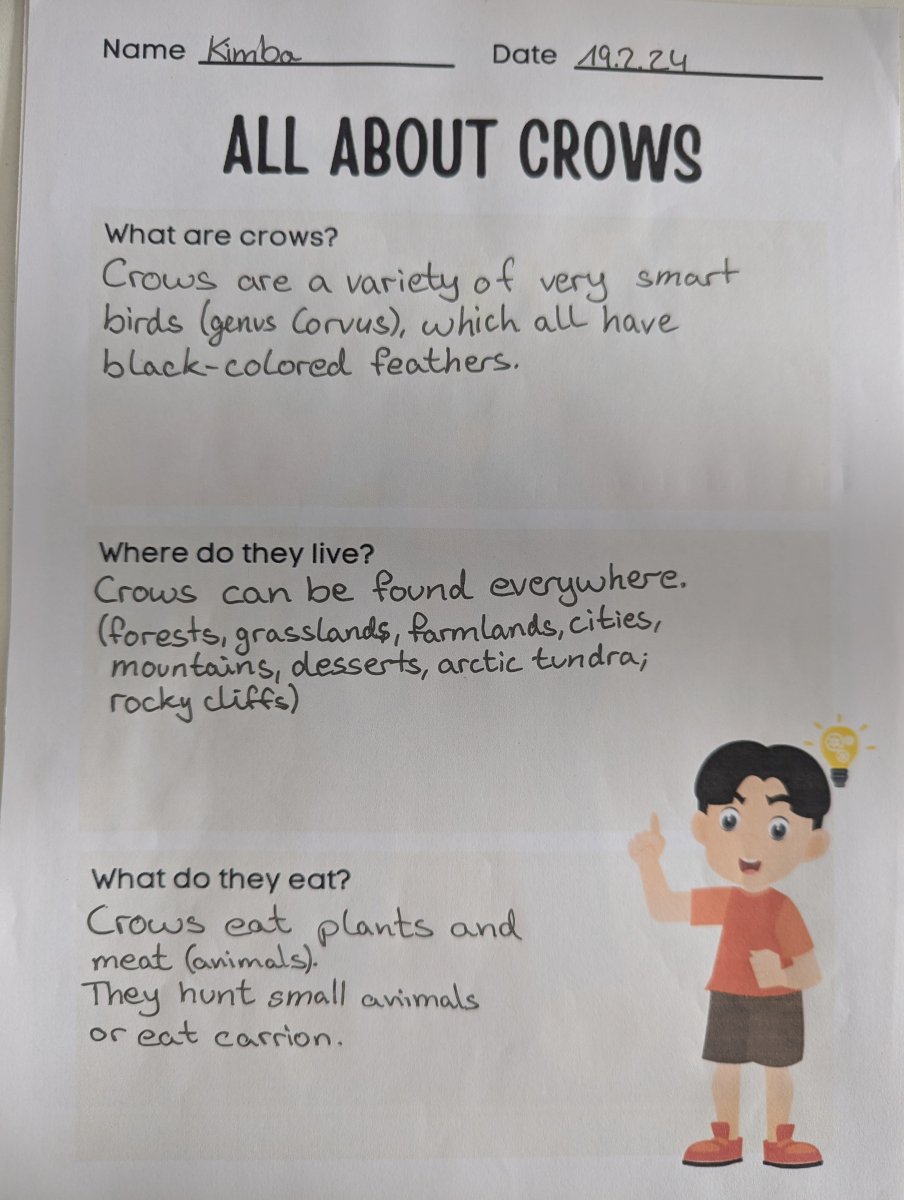 Name Kimba Date 19.2.24
ALL ABOUT CROWS
What are crows?
Crows are a variety of very smart
birds (genus Corvus), which all have
black-colored feathers.
Where do they live?
Crows can be found everywhere.
(forests, grasslands, farmlands, cities,
mountains, desserts, arctic tundra;
rocky cliffs)
What do they eat?
Crows eat plants and
meat (animals).
They hunt small animals
or eat carrion.